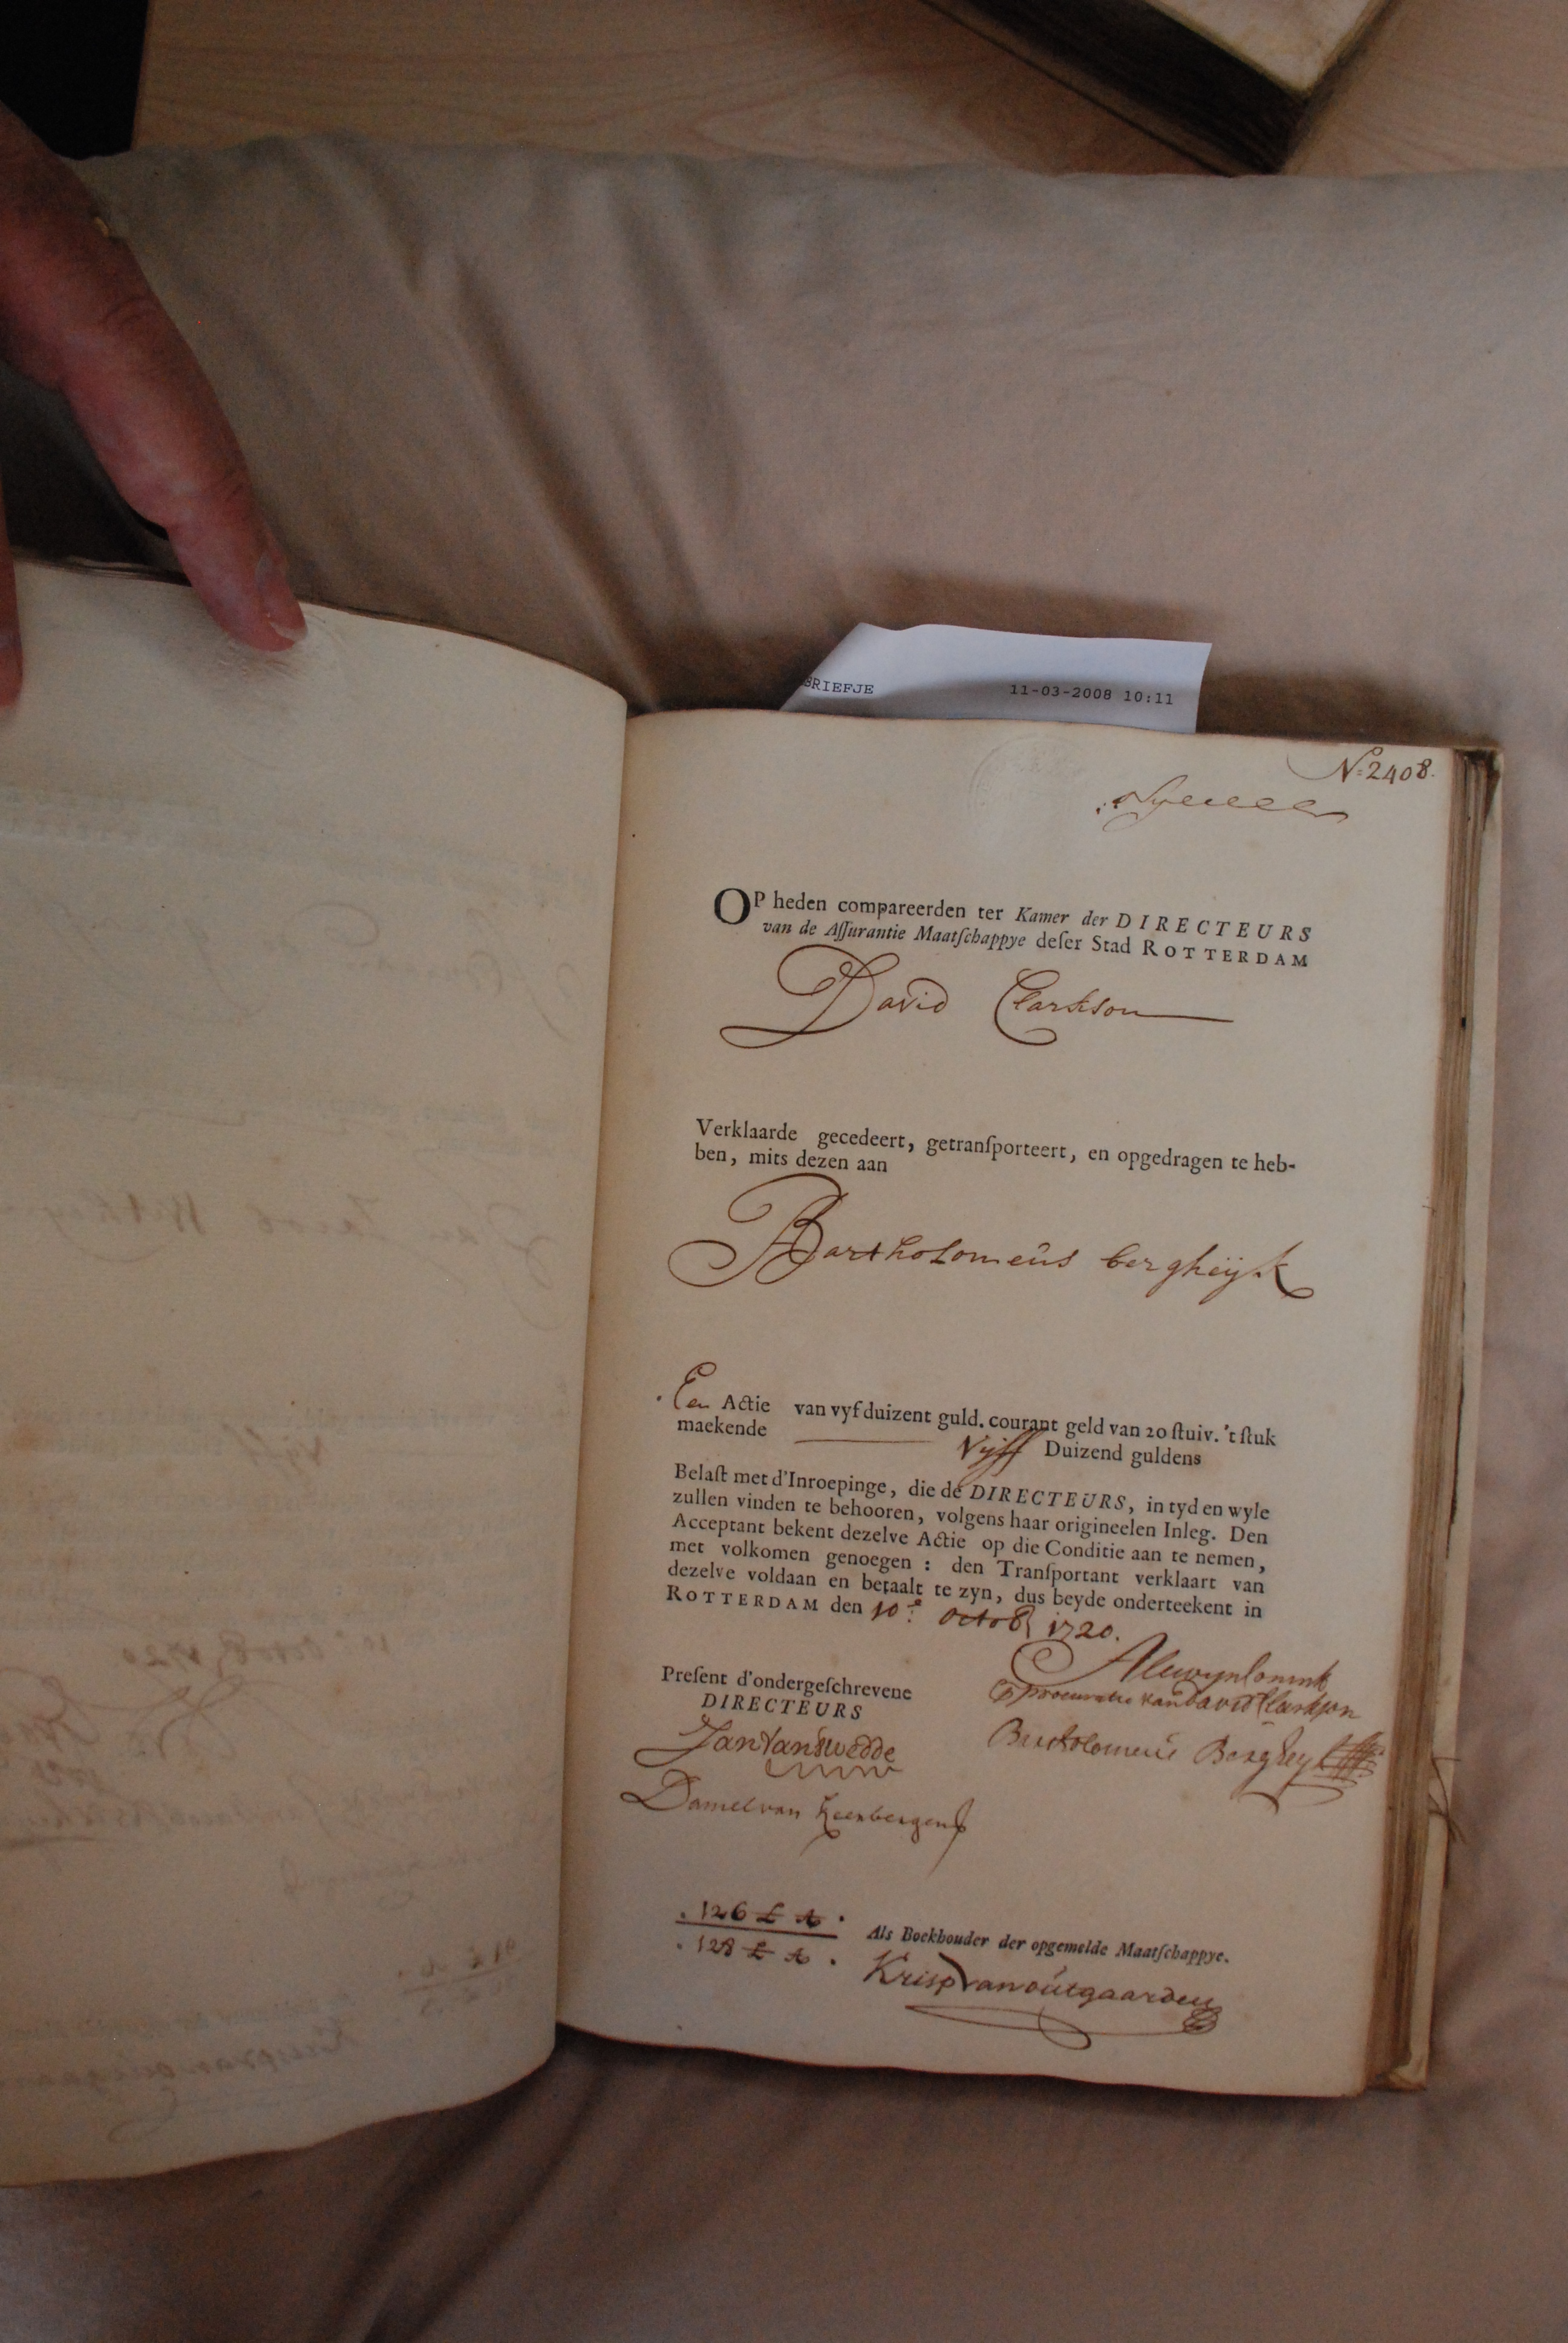 BRIEFJE 11-03-2008 10:11
No 2408.
OP heden compareerden ter Kamer der DIRECTEURS
van de Aſſurantie Maatſchappye deſer Stad ROTTERDAM
David Clarkson
Verklaarde gecedeert, getranſporteert, en opgedragen te heb-
ben, mits dezen aan
Bartholomeus bergheijk
Een Actie van vyf duizent guld. courant geld van 20 ſtuiv. 't ſtuk
maekende Vijff Duizend guldens
Belaſt met d'Inroepinge, die de DIRECTEURS, in tyd en wyle
zullen vinden te behooren, volgens haar origineelen Inleg. Den
Acceptant bekent dezelve Actie op die Conditie aan te nemen,
met volkomen genoegen : den Tranſportant verklaart van
dezelve voldaan en betaalt te zyn, dus beyde onderteekent in
ROTTERDAM den 10e Octob 1720.
Preſent d'ondergeſchrevene
DIRECTEURS
procuratie van David Clarkson
Jan Van Swedde
Bartolomeus Bergheyk
Daniel van
126
128
Als Boekhouder der opgemelde Maatſchappye.
Krisp van outgaarden